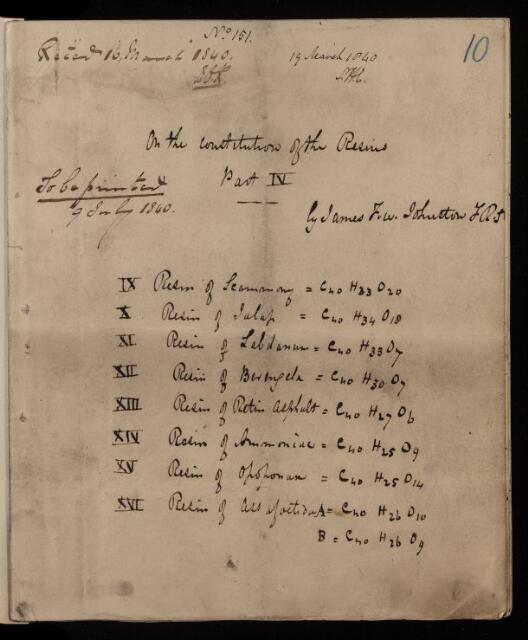 No 151.
Recd 16 March 1840.
19 March 1840
10
S.H.C.
On the constitution of the Resins
Part IV
To be printed
9 July 1840.
by James F. W. Johnston F.R.S
IX Resin of Scammony = C40 H33 O20
X Resin of Jalap = C40 H34 O18
XI Resin of Labdanum = C40 H33 O7
XII Resin of Berengela = C40 H30 O7
XIII Resin of Retin Asphalt = C40 H27 O6
XIV Resin of Ammoniac = C40 H25 O9
XV Resin of Opoponax = C40 H25 O14
XVI Resin of Assafoetida A = C40 H26 O10
B = C40 H26 O9